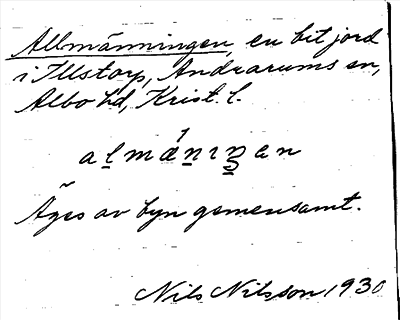 Allmänningen, en bit jord
i Illstorp, Andrarums sn,
Albo hd, Krist. l.
almǽnıŋen
Äges av byn gemensamt.
Nils Nilsson 1930